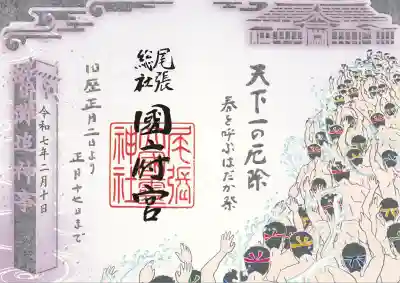 天下一の厄除
春を呼ぶはだか祭
尾張
総社
國府宮
尾張
国府宮
神社
旧歴 正月二日より
正月十七日まで
儺追神事
令和七年二月十日